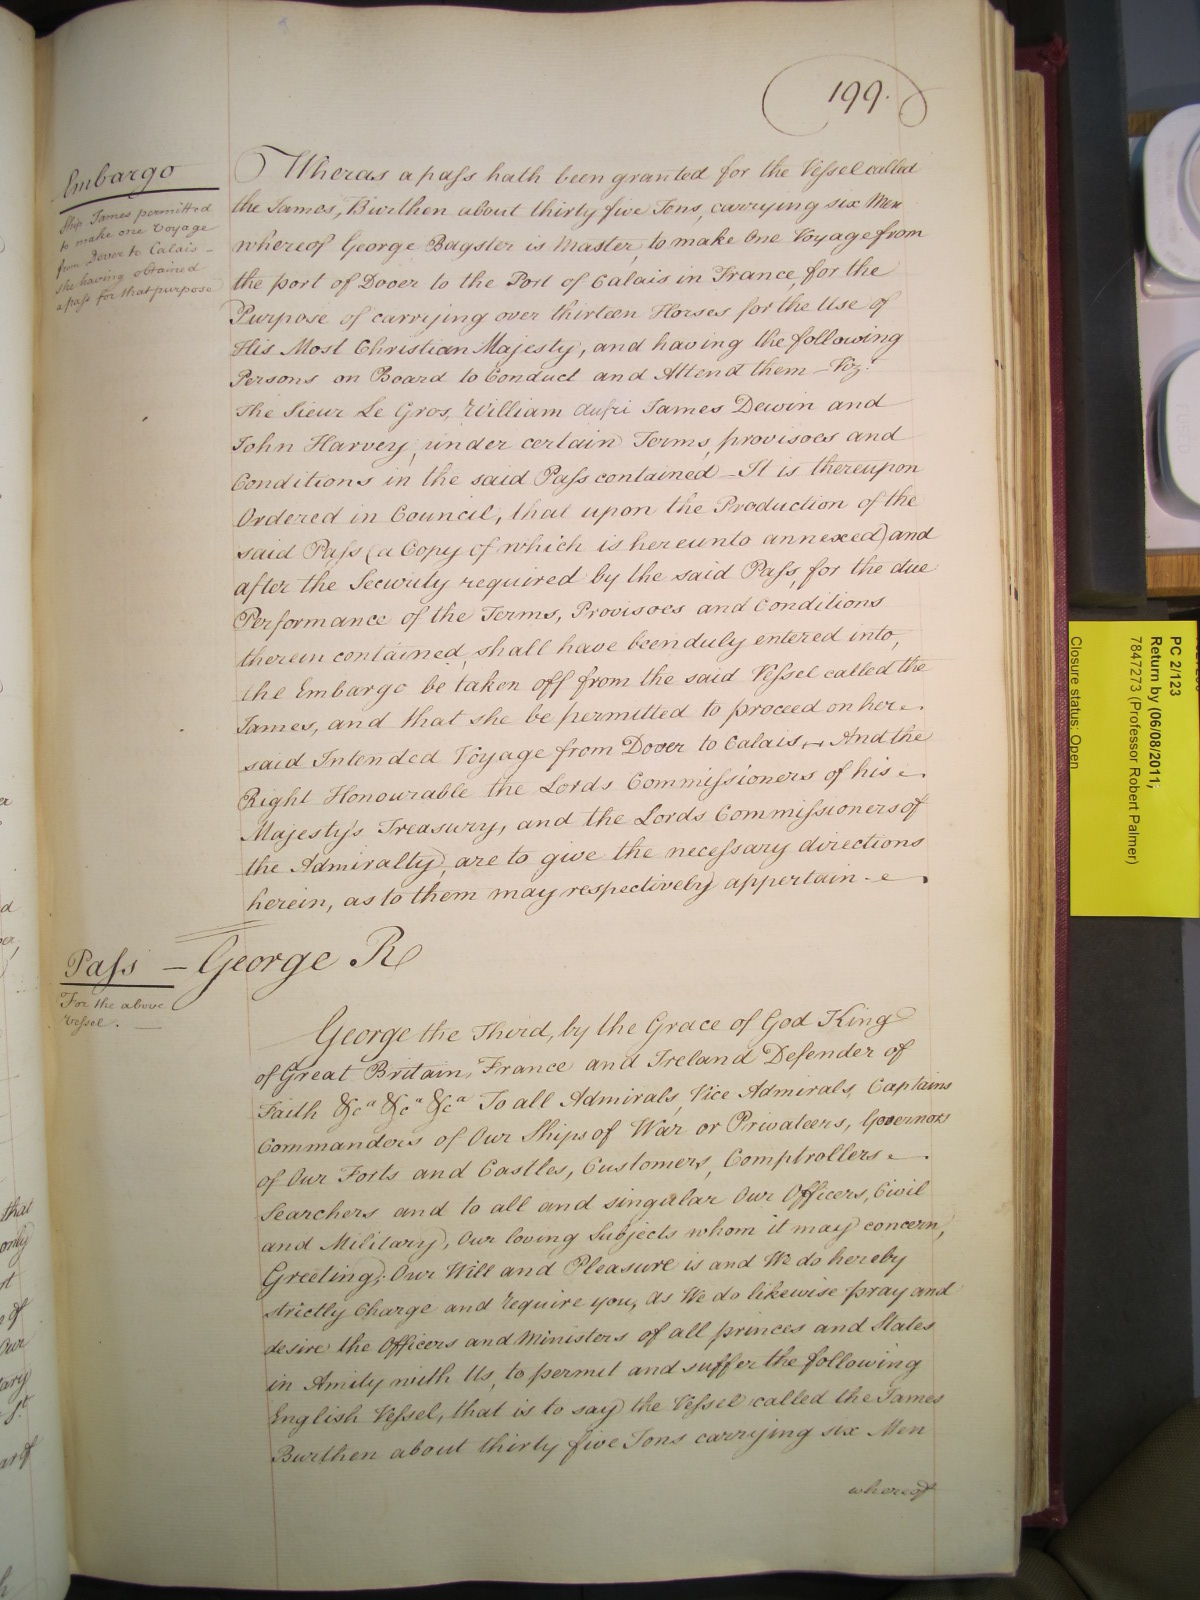 199.
Embargo
Ship James permitted
to make one Voyage
from Dover to Calais –
she having obtained
a pass for that purpose
Wheras a pass hath been granted for the Vessel called
the James, Burthen about thirty five Tons, carrying six Men
whereof George Bagster is Master, to make One Voyage from
the port of Dover to the Port of Calais in France, for the
Purpose of carrying over thirteen Horses for the Use of
His Most Christian Majesty, and having the following
Persons on Board to Conduct and Attend them – Viz.t
The Sieur Le Gros, William James Dewin and
John Harvey, under certain Terms, provisoes and
Conditions in the said Pass contained – It is thereupon
Ordered in Council, that upon the Production of the
said Pass (a Copy of which is hereunto annexed) and
after the Security required by the said Pass, for the due
Performance of the Terms, Provisoes and Conditions
therein contained, shall have been duly entered into,
the Embargo be taken off from the said Vessel called the
James, and that she be permitted to proceed on her
said Intended Voyage from Dover to Calais, – And the
Right Honourable the Lords Commissioners of his
Majesty's Treasury, and the Lords Commissioners of
the Admiralty, are to give the necessary directions
herein, as to them may respectively appertain
Pass – George R
For the above
Vessel. —
George the Third, by the Grace of God King
of Great Britain, France and Ireland Defender of
Faith &c.a &c.a &c.a To all Admirals, Vice Admirals, Captains
Commanders of Our Ships of War or Privateers, Governors
of Our Forts and Castles, Customers, Comptrollers
Searchers and to all and singular Our Officers, Civil
and Military, Our loving Subjects whom it may concern,
Greeting; Our Will and Pleasure is and We do hereby
strictly Charge and require you, as We do likewise pray and
desire the Officers and Ministers of all princes and States
in Amity with Us, to permit and suffer the following
English Vessel, that is to say the Vessel called the James
Burthen about thirty five Tons carrying six Men
whereof
PC 2/123
Return by (06/08/2011;
7847273 (Professor Robert Palmer)
Closure status: Open